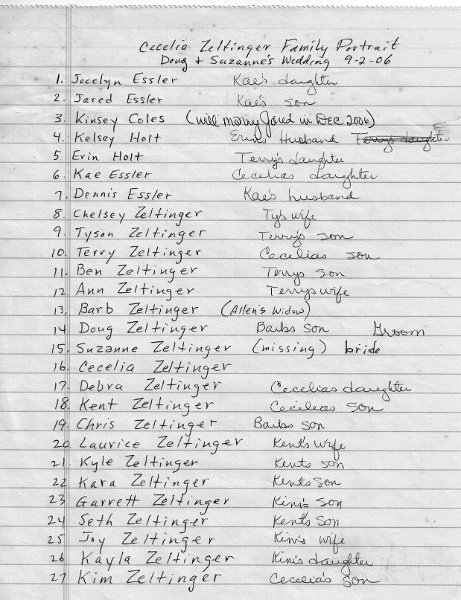 Cecelia Zeltinger Family Portrait
Doug & Suzanne's Wedding 9-2-06
1. Jocelyn Essler Kae's daughter
2. Jared Essler Kae's son
3. Kinsey Coles (will marry Jared in Dec 2006)
4. Kelsey Holt Erin's Husband Terry's daughter
5 Erin Holt Terry's daughter
6. Kae Essler Cecelias daughter
7. Dennis Essler Kae's husband
8. Chelsey Zeltinger Ty's wife
9. Tyson Zeltinger Terry's son
10. Terry Zeltinger Cecelias son
11. Ben Zeltinger Terrys son
12. Ann Zeltinger Terryswife
13. Barb Zeltinger (Allen's Widow)
14. Doug Zeltinger Barbs son Groom
15. Suzanne Zeltinger (missing) bride
16. Cecelia Zeltinger
17. Debra Zeltinger Cecelias daughter
18. Kent Zeltinger Cecileas son
19. Chris Zeltinger Barbs son
20 Laurice Zeltinger Kent's wife
21 Kyle Zeltinger Kents son
22 Kara Zeltinger Kents son
23 Garrett Zeltinger Kim's son
24 Seth Zeltinger Kent's son
25 Joy Zeltinger Kim's wife
26 Kayla Zeltinger Kim's daughter
27 Kim Zeltinger Cecelia's son